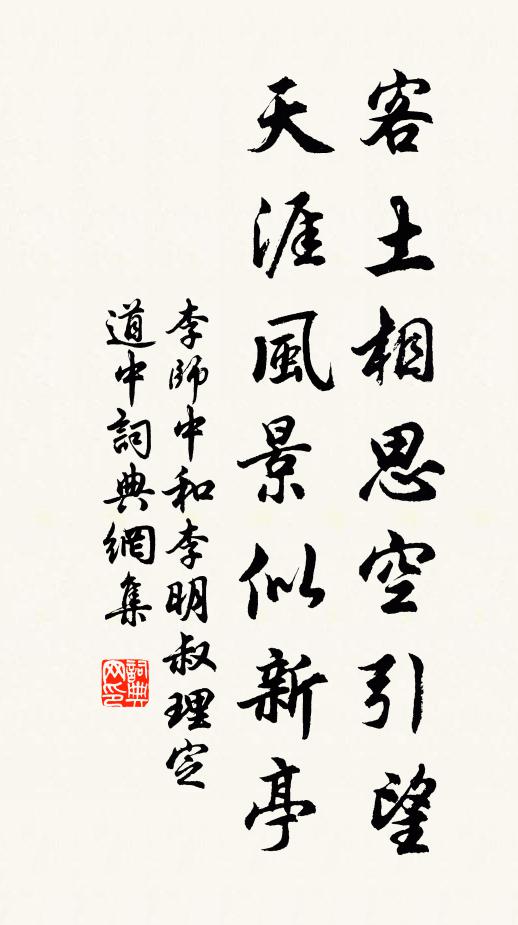 客土相思空引望
天涯風景似新亭
李師中和李明叔理定
道中詞典網集
詞典网印